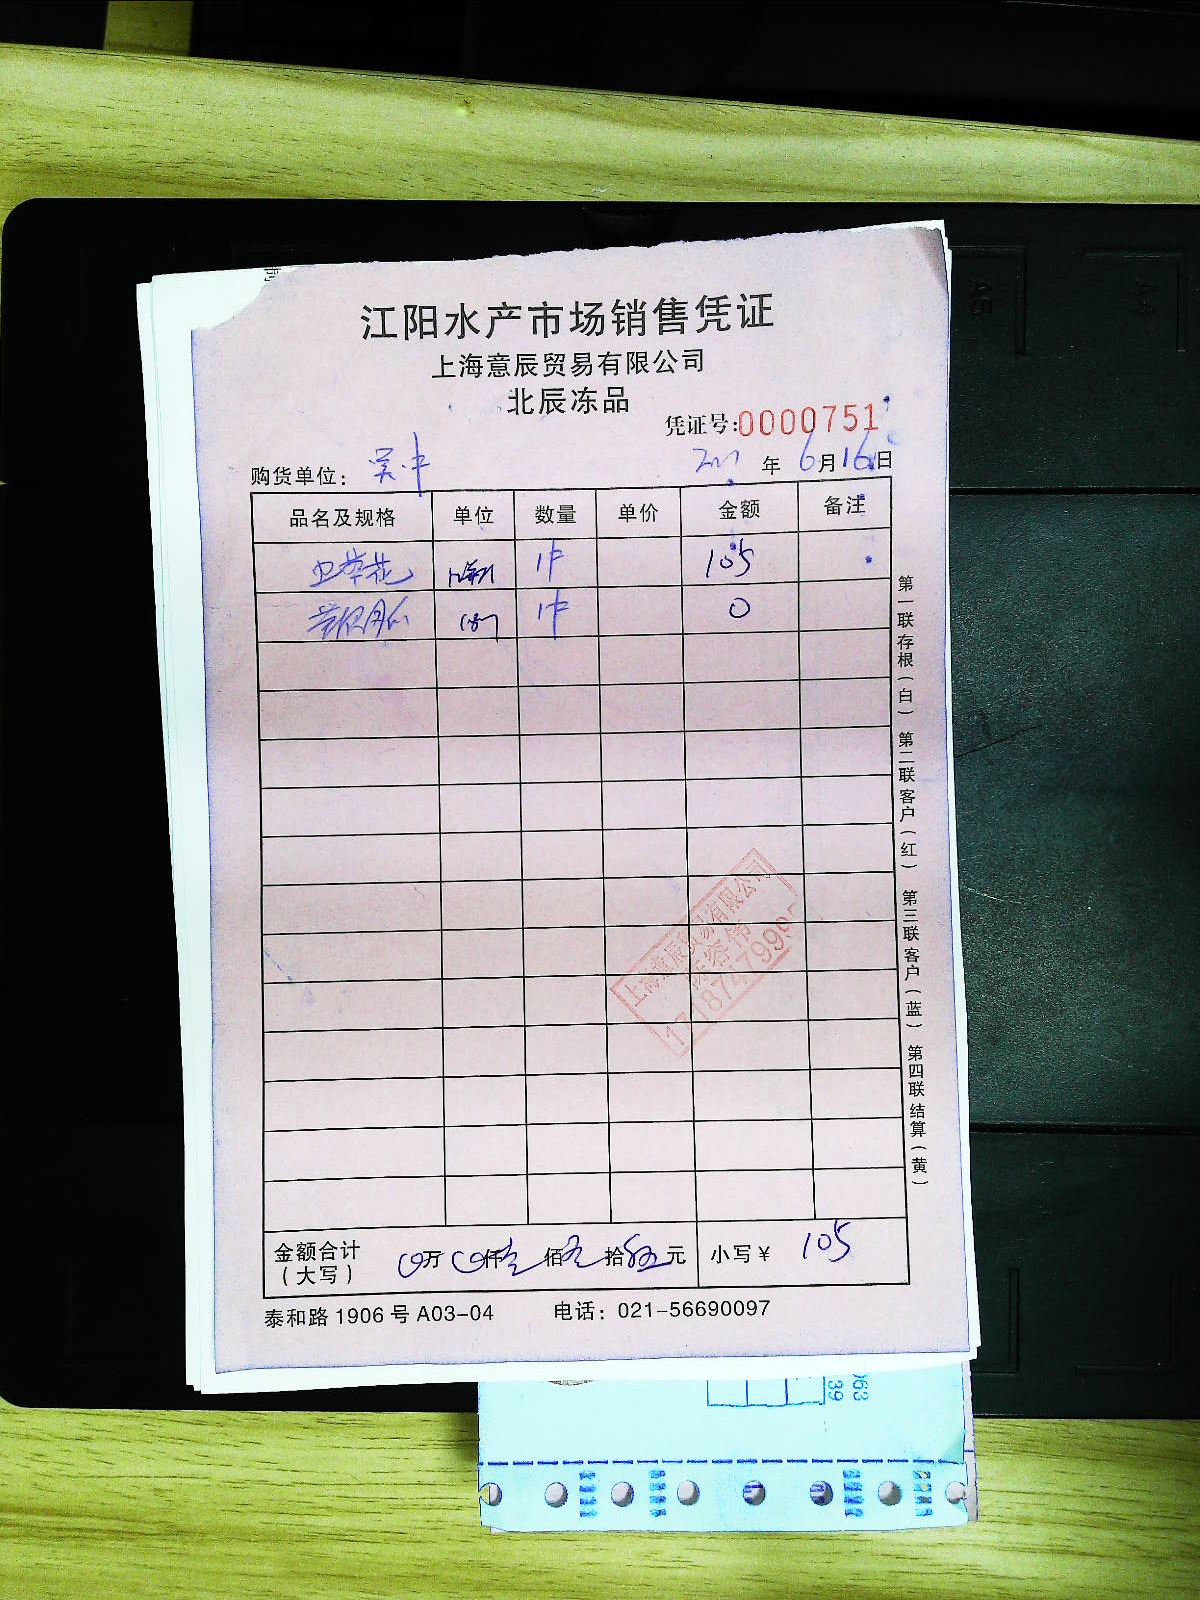 江阳水产市场销售凭证
上海意辰贸易有限公司
北辰冻品
凭证号:0000751
购货单位: 吴中 年 6月16日
品名及规格 单位 数量 单价 金额 备注
虫草花 1件 105
1件 0
金额合计 万 仟 佰 拾 元 小写¥ 105
(大写)
泰和路1906号A03-04 电话: 021-56690097
第一联存根(白) 第二联客户(红) 第三联客户(蓝) 第四联结算(黄)
上海意辰贸易有限公司